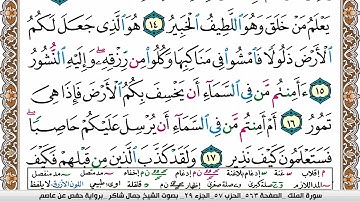 يَعْلَمُ مَنْ خَلَقَ وَهُوَ اللَّطِيفُ الْخَبِيرُ ١٤ هُوَ الَّذِي جَعَلَ لَكُمُ
الْأَرْضَ ذَلُولًا فَامْشُوا فِي مَنَاكِبِهَا وَكُلُوا مِن رِّزْقِهِ وَإِلَيْهِ النُّشُورُ
١٥ ءَأَمِنتُم مَّن فِي السَّمَاءِ أَن يَخْسِفَ بِكُمُ الْأَرْضَ فَإِذَا هِيَ
تَمُورُ ١٦ أَمْ أَمِنتُم مَّن فِي السَّمَاءِ أَن يُرْسِلَ عَلَيْكُمْ حَاصِبًا
فَسَتَعْلَمُونَ كَيْفَ نَذِيرِ ١٧ وَلَقَدْ كَذَّبَ الَّذِينَ مِن قَبْلِهِمْ فَكَيْفَ
سورة الملك . الصفحة ٥٦٣ الجزء ٥٧ الجزء ٢٩ . بصوت الشيخ جمال شاكر . برواية حفص عن عاصم